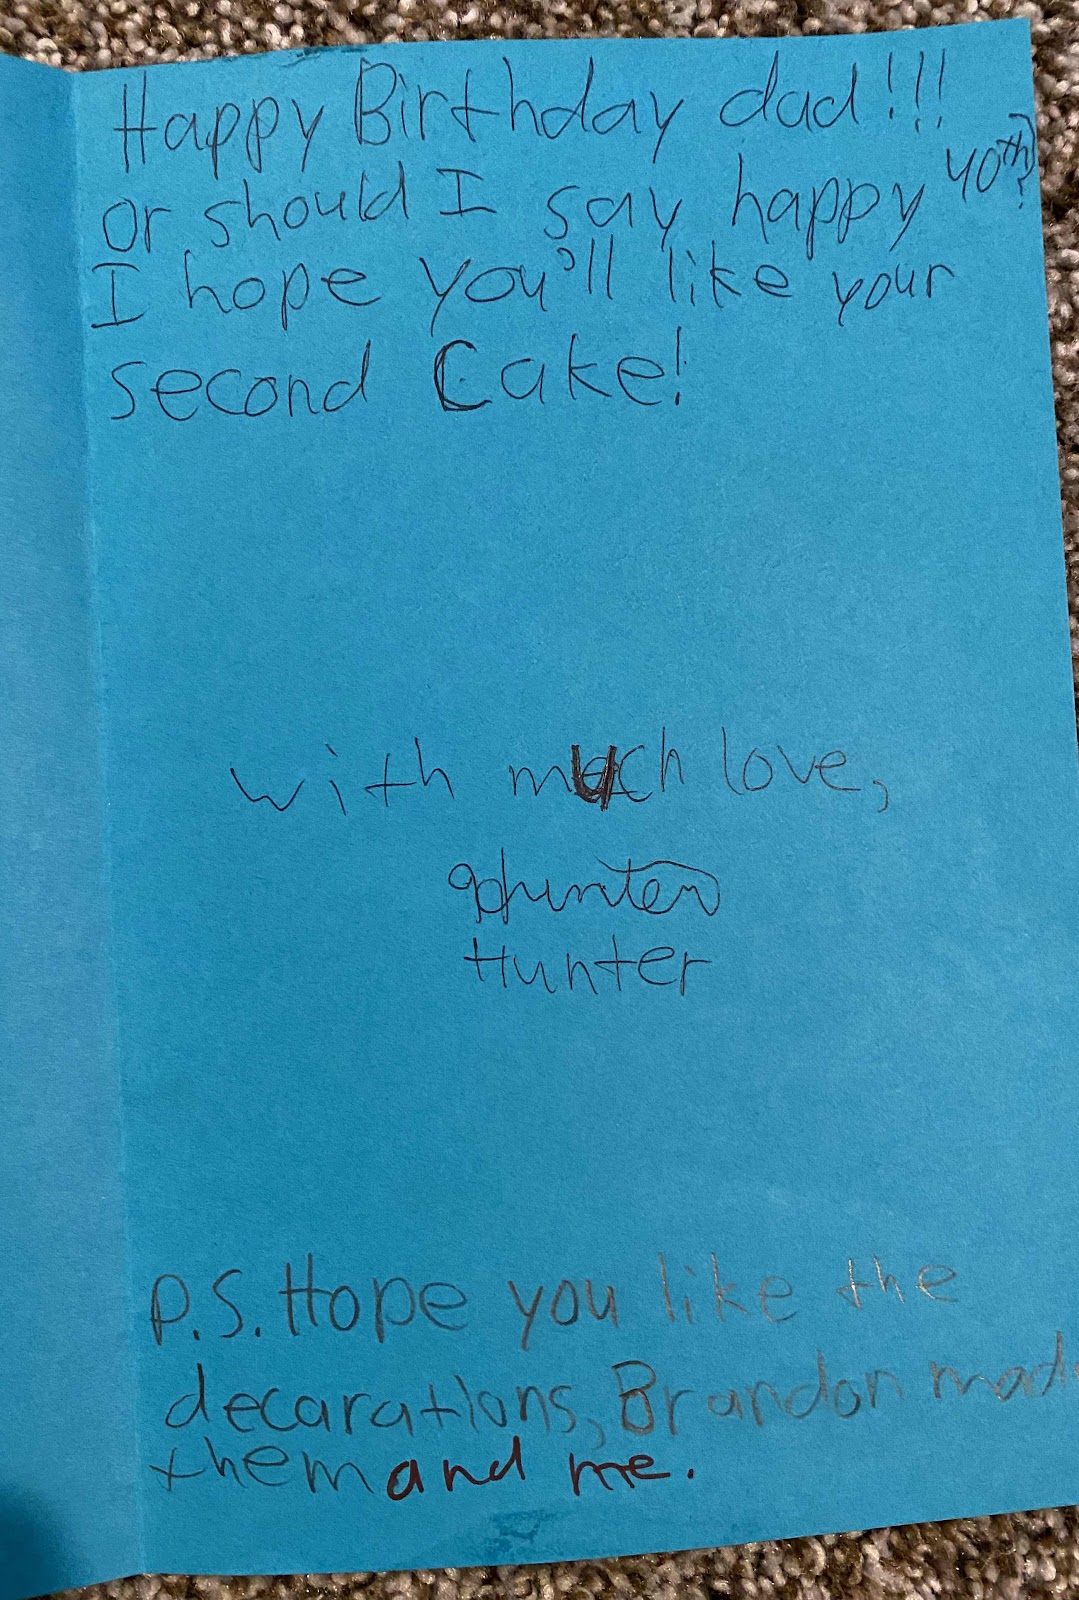 Happy Birthday dad!!!
or should I say happy 40th?
I hope you'll like your
second Cake!
with much love,
Hunter
Hunter
P.S. Hope you like the
decarations, Brandon mad
them and me.